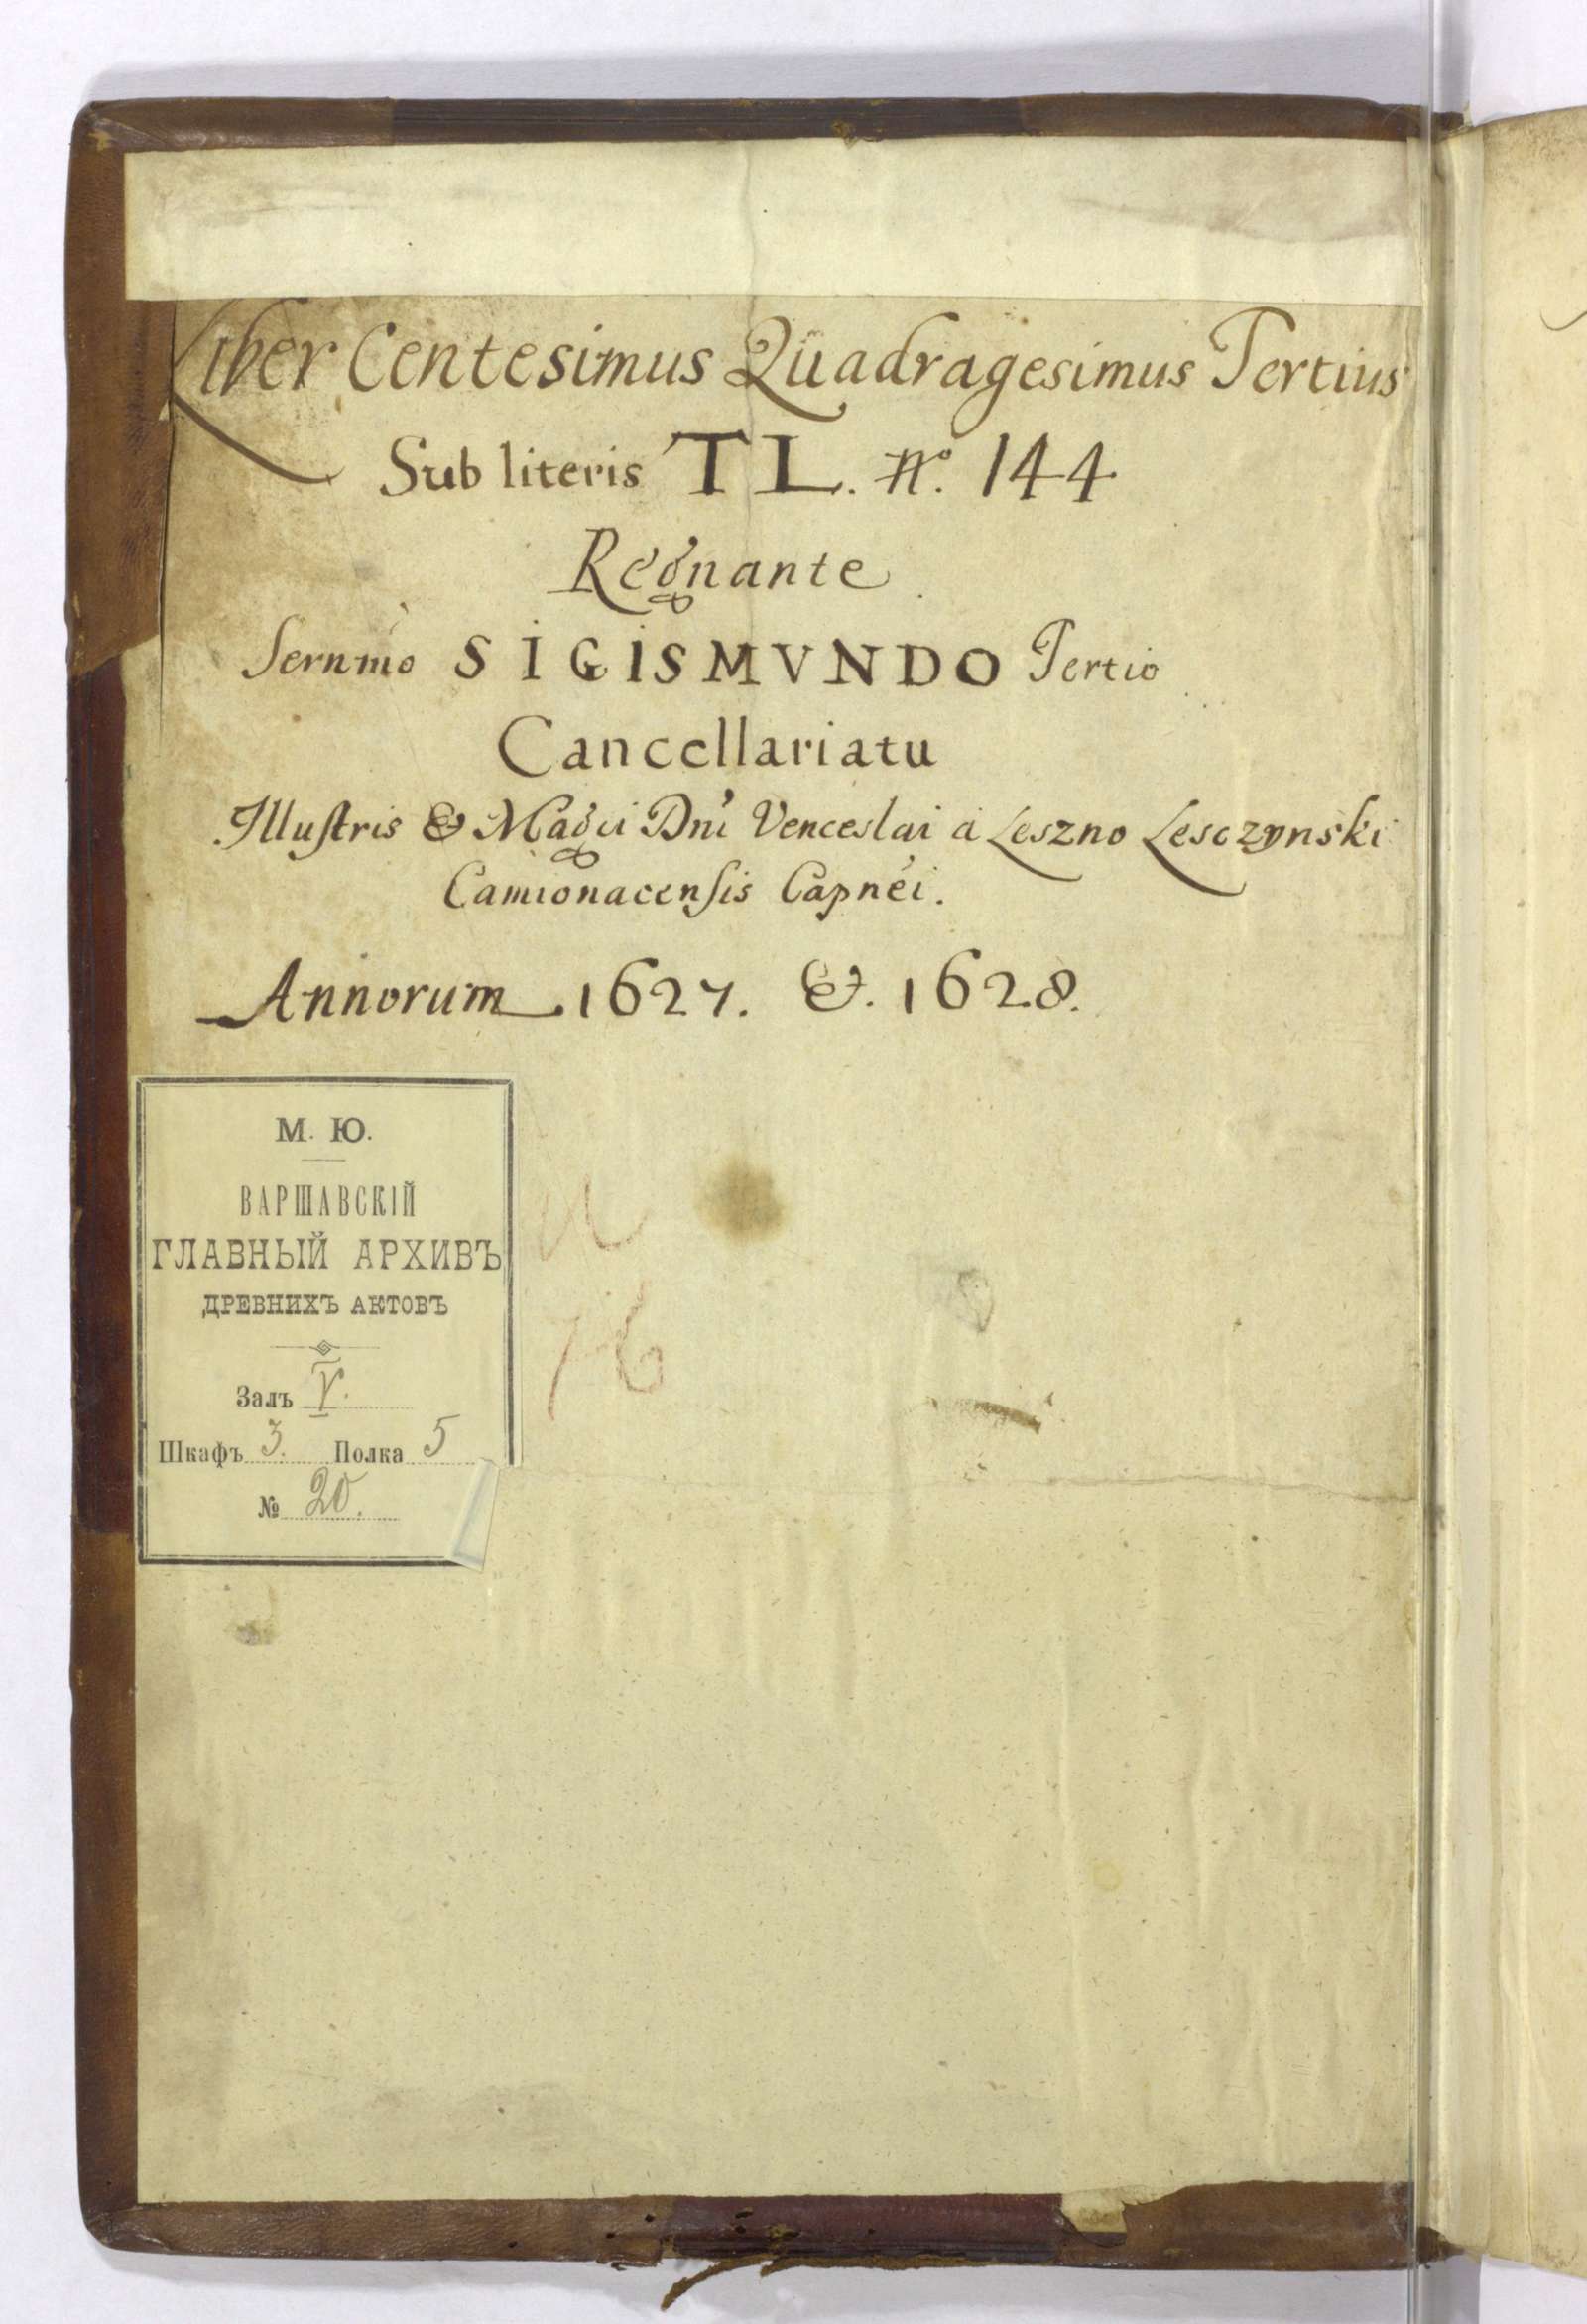 Liber Centesimus Quadragesimus Tertius
Sub literis T L. No. 144
Regnante
Sernmo SIGISMVNDO Tertio
Cancellariatu
Illustris & Magci Dni Venceslai a Leszno Lesczynski
Camionacensis Capnei.
Annorum 1627. &. 1628.
М. Ю.
ВАРШАВСКІЙ
ГЛАВНЫЙ АРХИВЪ
ДРЕВНИХЪ АКТОВЪ
Залъ V.
Шкафъ 3. Полка 5
№ 20.